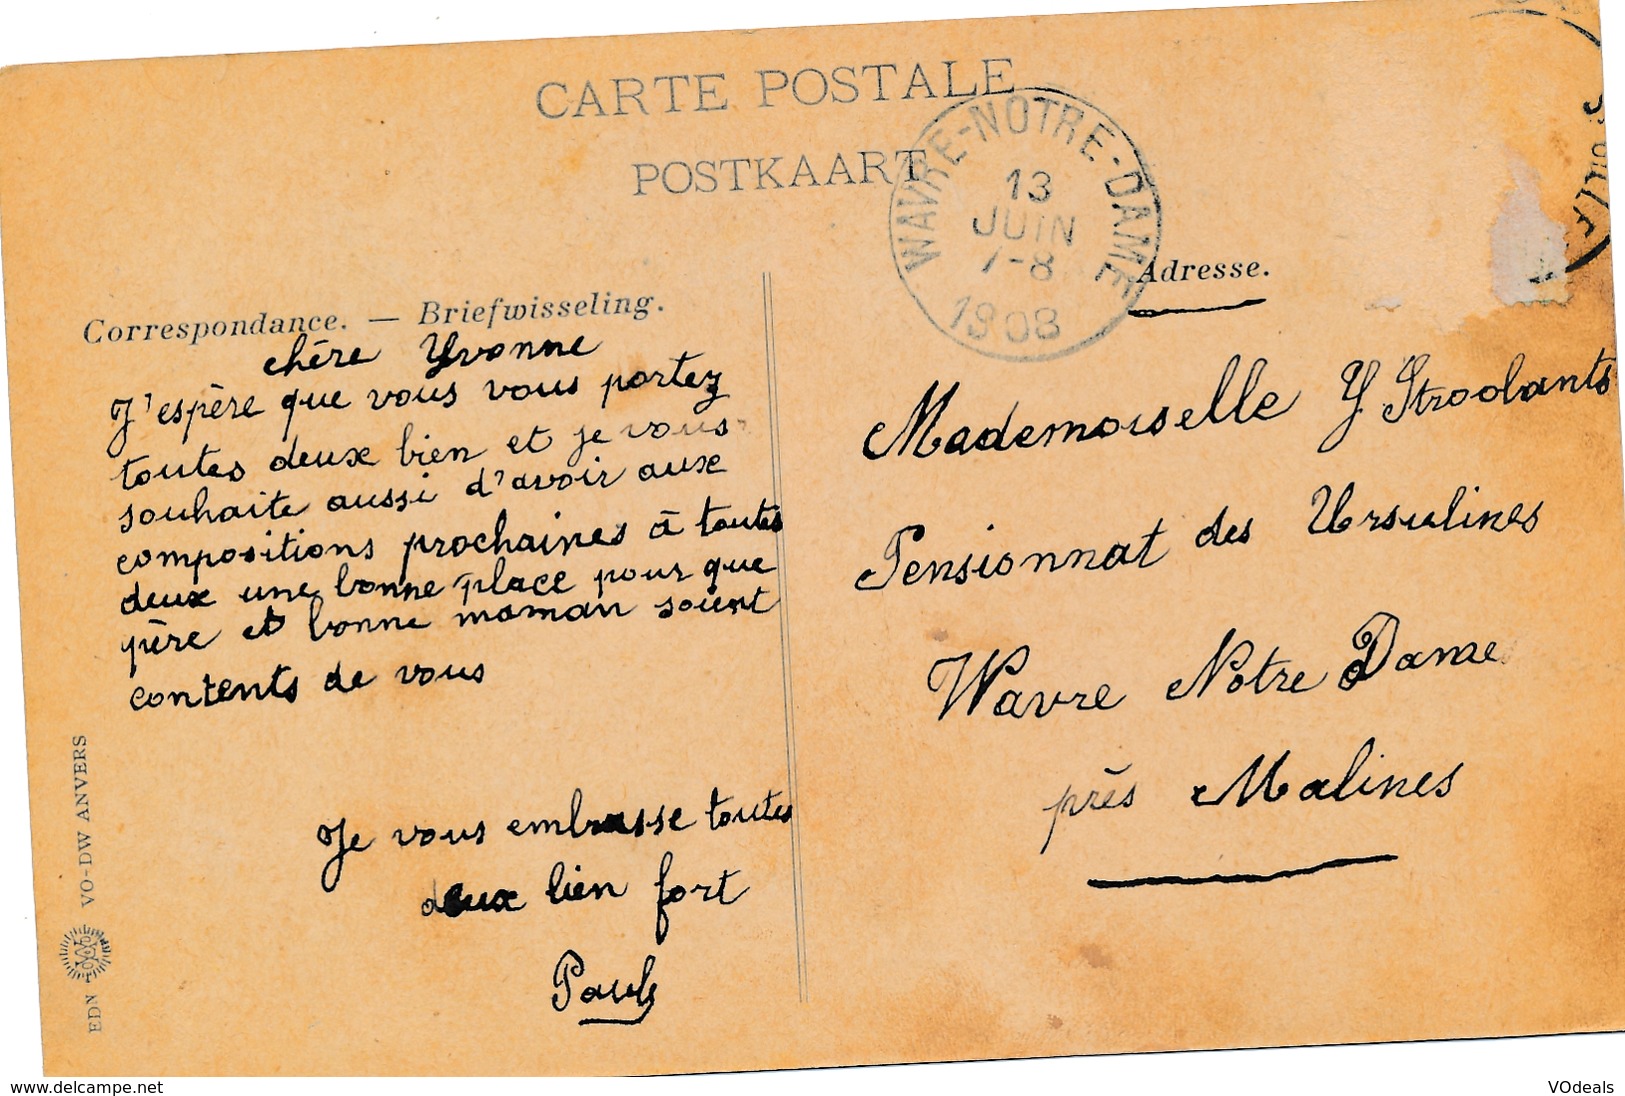 CARTE POSTALE
POSTKAART
WAVRE-NOTRE-DAME
13
JUIN
7-8
1908
Correspondance. — Briefwisseling.
Adresse.
chère Yvonne
J'espère que vous vous portez
toutes deux bien et je vous
souhaite aussi d'avoir aux
compositions prochaines à toutes
deux une bonne place pour que
père et bonne maman soient
contents de vous
Je vous embrasse toutes
deux bien fort
Paul
Mademoiselle Y Stroobants
Pensionnat des Ursulines
Wavre Notre Dame
près Malines
EDN VO-DW ANVERS
delcampe.net
VOdeals